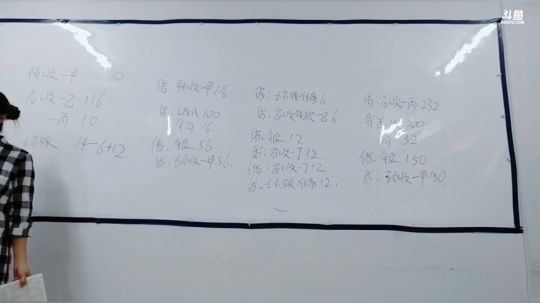 斗鱼
预收—甲 60
应收—乙 116
—丙 10
坏账 14-6+12
借：预收—甲 116
贷：收入 100
16
借：银 56
贷：预收—甲 56.
借：坏账准备 6
贷：应收账款—乙 6
借：银 12
贷：应收—丁 12.
借：应收—丁 12
贷：坏账准备 12.
借：应收—丙 232
200
32
借：银 150
贷：预收—甲 150.